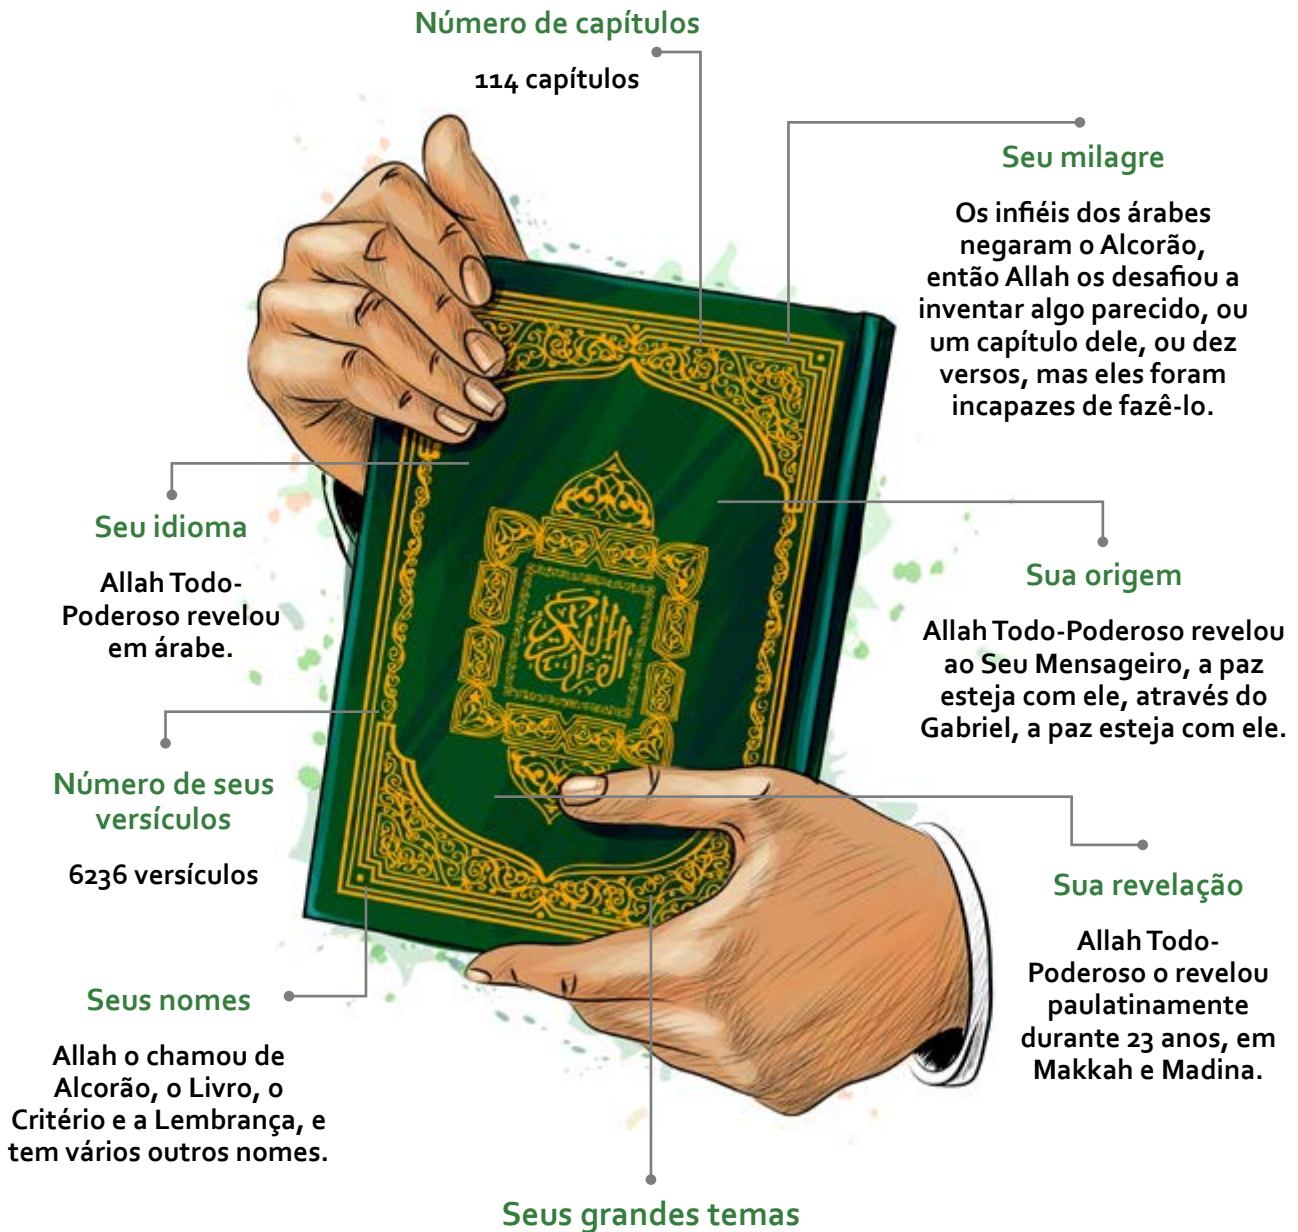 Número de capítulos
114 capítulos
Seu milagre
Os infiéis dos árabes
negaram o Alcorão,
então Allah os desafiou a
inventar algo parecido, ou
um capítulo dele, ou dez
versos, mas eles foram
incapazes de fazê-lo.
Seu idioma
Allah Todo-
Poderoso revelou
em árabe.
Sua origem
Allah Todo-Poderoso revelou
ao Seu Mensageiro, a paz
esteja com ele, através do
Gabriel, a paz esteja com ele.
القرآن الكريم
Número de seus
versículos
6236 versículos
Sua revelação
Allah Todo-
Poderoso o revelou
paulatinamente
durante 23 anos, em
Makkah e Madina.
Seus nomes
Allah o chamou de
Alcorão, o Livro, o
Critério e a Lembrança, e
tem vários outros nomes.
Seus grandes temas